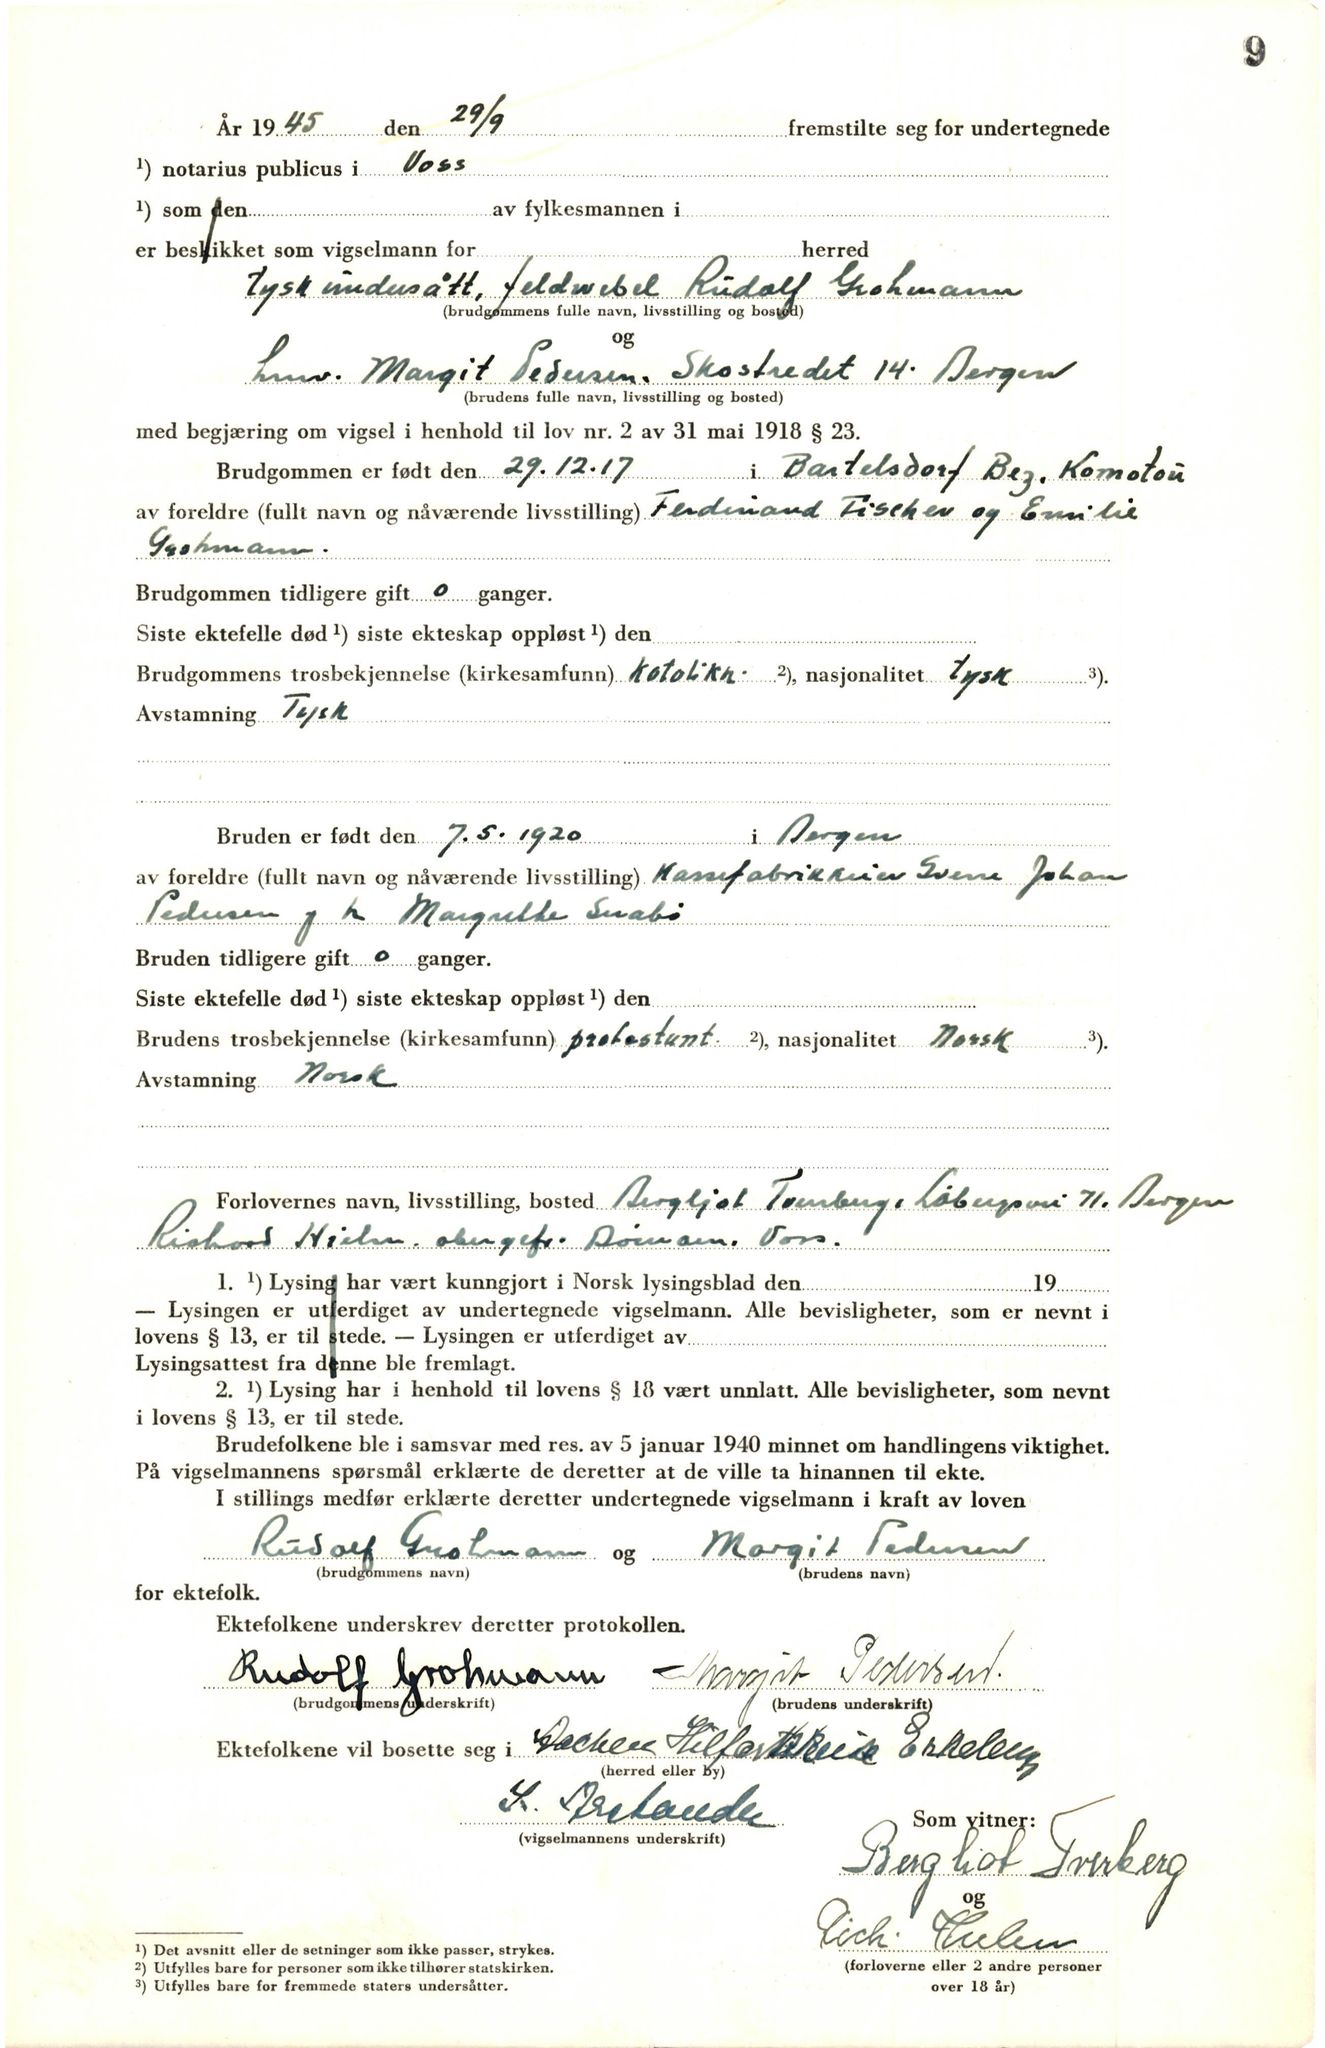 9
År 1945 den 29/9 fremstilte seg for undertegnede
¹) notarius publicus i Voss
¹) som den av fylkesmannen i
er beskikket som vigselmann for herred
tysk undersått, feldwebel Rudolf Grohmann
(brudgommens fulle navn, livsstilling og bosted)
og
Margit Pedersen. Skostredet 14. Bergen
(brudens fulle navn, livsstilling og bosted)
med begjæring om vigsel i henhold til lov nr. 2 av 31 mai 1918 § 23.
Brudgommen er født den 29.12.17 i Bartelsdorf Bez. Komotau
av foreldre (fullt navn og nåværende livsstilling) Ferdinand Fischer og Emilie
Grohmann.
Brudgommen tidligere gift 0 ganger.
Siste ektefelle død ¹) siste ekteskap oppløst ¹) den
Brudgommens trosbekjennelse (kirkesamfunn) Katolikk. ²), nasjonalitet tysk ³).
Avstamning Tysk
Bruden er født den 7.5.1920 i Bergen
av foreldre (fullt navn og nåværende livsstilling) Kassefabrikkeier Sverre Johan
Pedersen Margrethe
Bruden tidligere gift 0 ganger.
Siste ektefelle død ¹) siste ekteskap oppløst ¹) den
Brudens trosbekjennelse (kirkesamfunn) protestant. ²), nasjonalitet Norsk ³).
Avstamning Norsk
Forlovernes navn, livsstilling, bosted Bergljot Tverberg, 71. Bergen
obergefr. Voss.
1. ¹) Lysing har vært kunngjort i Norsk lysingsblad den 19
— Lysingen er utferdiget av undertegnede vigselmann. Alle bevisligheter, som er nevnt i
lovens § 13, er til stede. — Lysingen er utferdiget av
Lysingsattest fra denne ble fremlagt.
2. ¹) Lysing har i henhold til lovens § 18 vært unnlatt. Alle bevisligheter, som nevnt
i lovens § 13, er til stede.
Brudefolkene ble i samsvar med res. av 5 januar 1940 minnet om handlingens viktighet.
På vigselmannens spørsmål erklærte de deretter at de ville ta hinannen til ekte.
I stillings medfør erklærte deretter undertegnede vigselmann i kraft av loven
Rudolf Grohmann og Margit Pedersen
(brudgommens navn) (brudens navn)
for ektefolk.
Ektefolkene underskrev deretter protokollen.
Rudolf Grohmann Margit Pedersen.
(brudgommens underskrift) (brudens underskrift)
Ektefolkene vil bosette seg i Aachen Erkelenz
(herred eller by)
(vigselmannens underskrift)
Som vitner:
Bergliot Tverberg
og
Rich.
(forloverne eller 2 andre personer
over 18 år)
¹) Det avsnitt eller de setninger som ikke passer, strykes.
²) Utfylles bare for personer som ikke tilhører statskirken.
³) Utfylles bare for fremmede staters undersåtter.